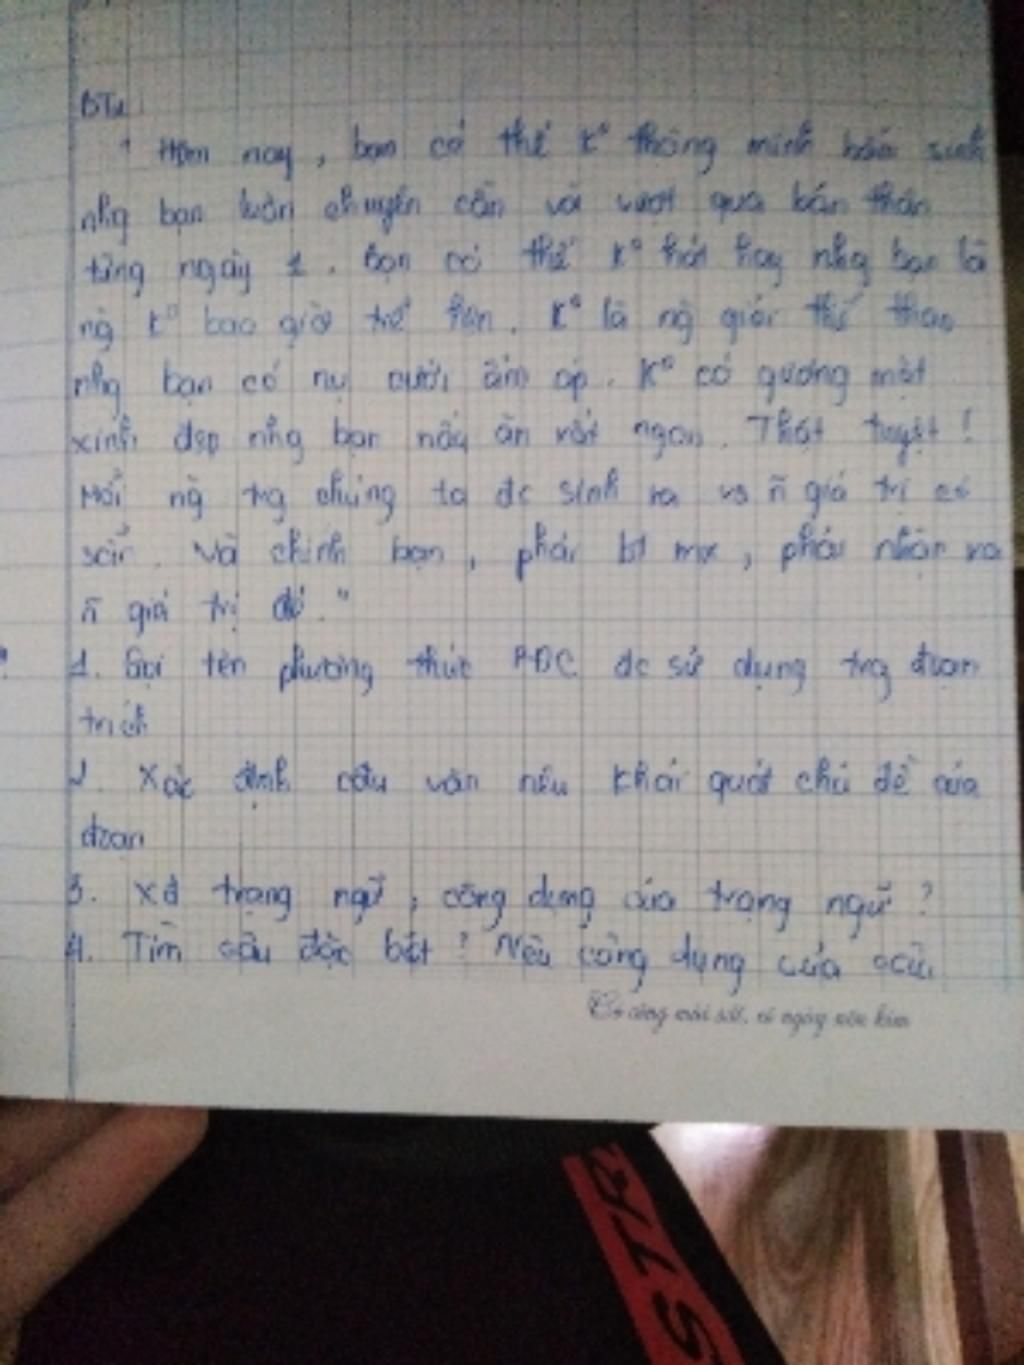 BT1
" Hôm nay, bạn có thể k° thông minh bẩm sinh
nhg bạn luôn chuyên cần và vượt qua bản thân
từng ngày 1. Bạn có thể k° hát hay nhg bạn là
ng k° bao giờ trễ hẹn. K° là ng giỏi thể thao
nhg bạn có nụ cười ấm áp. K° có gương mặt
xinh đẹp nhg bạn nấu ăn rất ngon. Thật tuyệt!
Mỗi ng trg chúng ta đc sinh ra vs ~n giá trị có
sẵn. Và chính bạn, phải bt mk, phải nhận ra
~n giá trị đó."
1. Gọi tên phương thức BĐC đc sử dụng trg đoạn
trích
2. Xác định câu văn nêu khái quát chủ đề của
đoạn
3. Xđ trạng ngữ, công dụng của trạng ngữ?
4. Tìm câu đặc bệt? Nêu công dụng của
Có công mài sắt, có ngày nên kim
STR